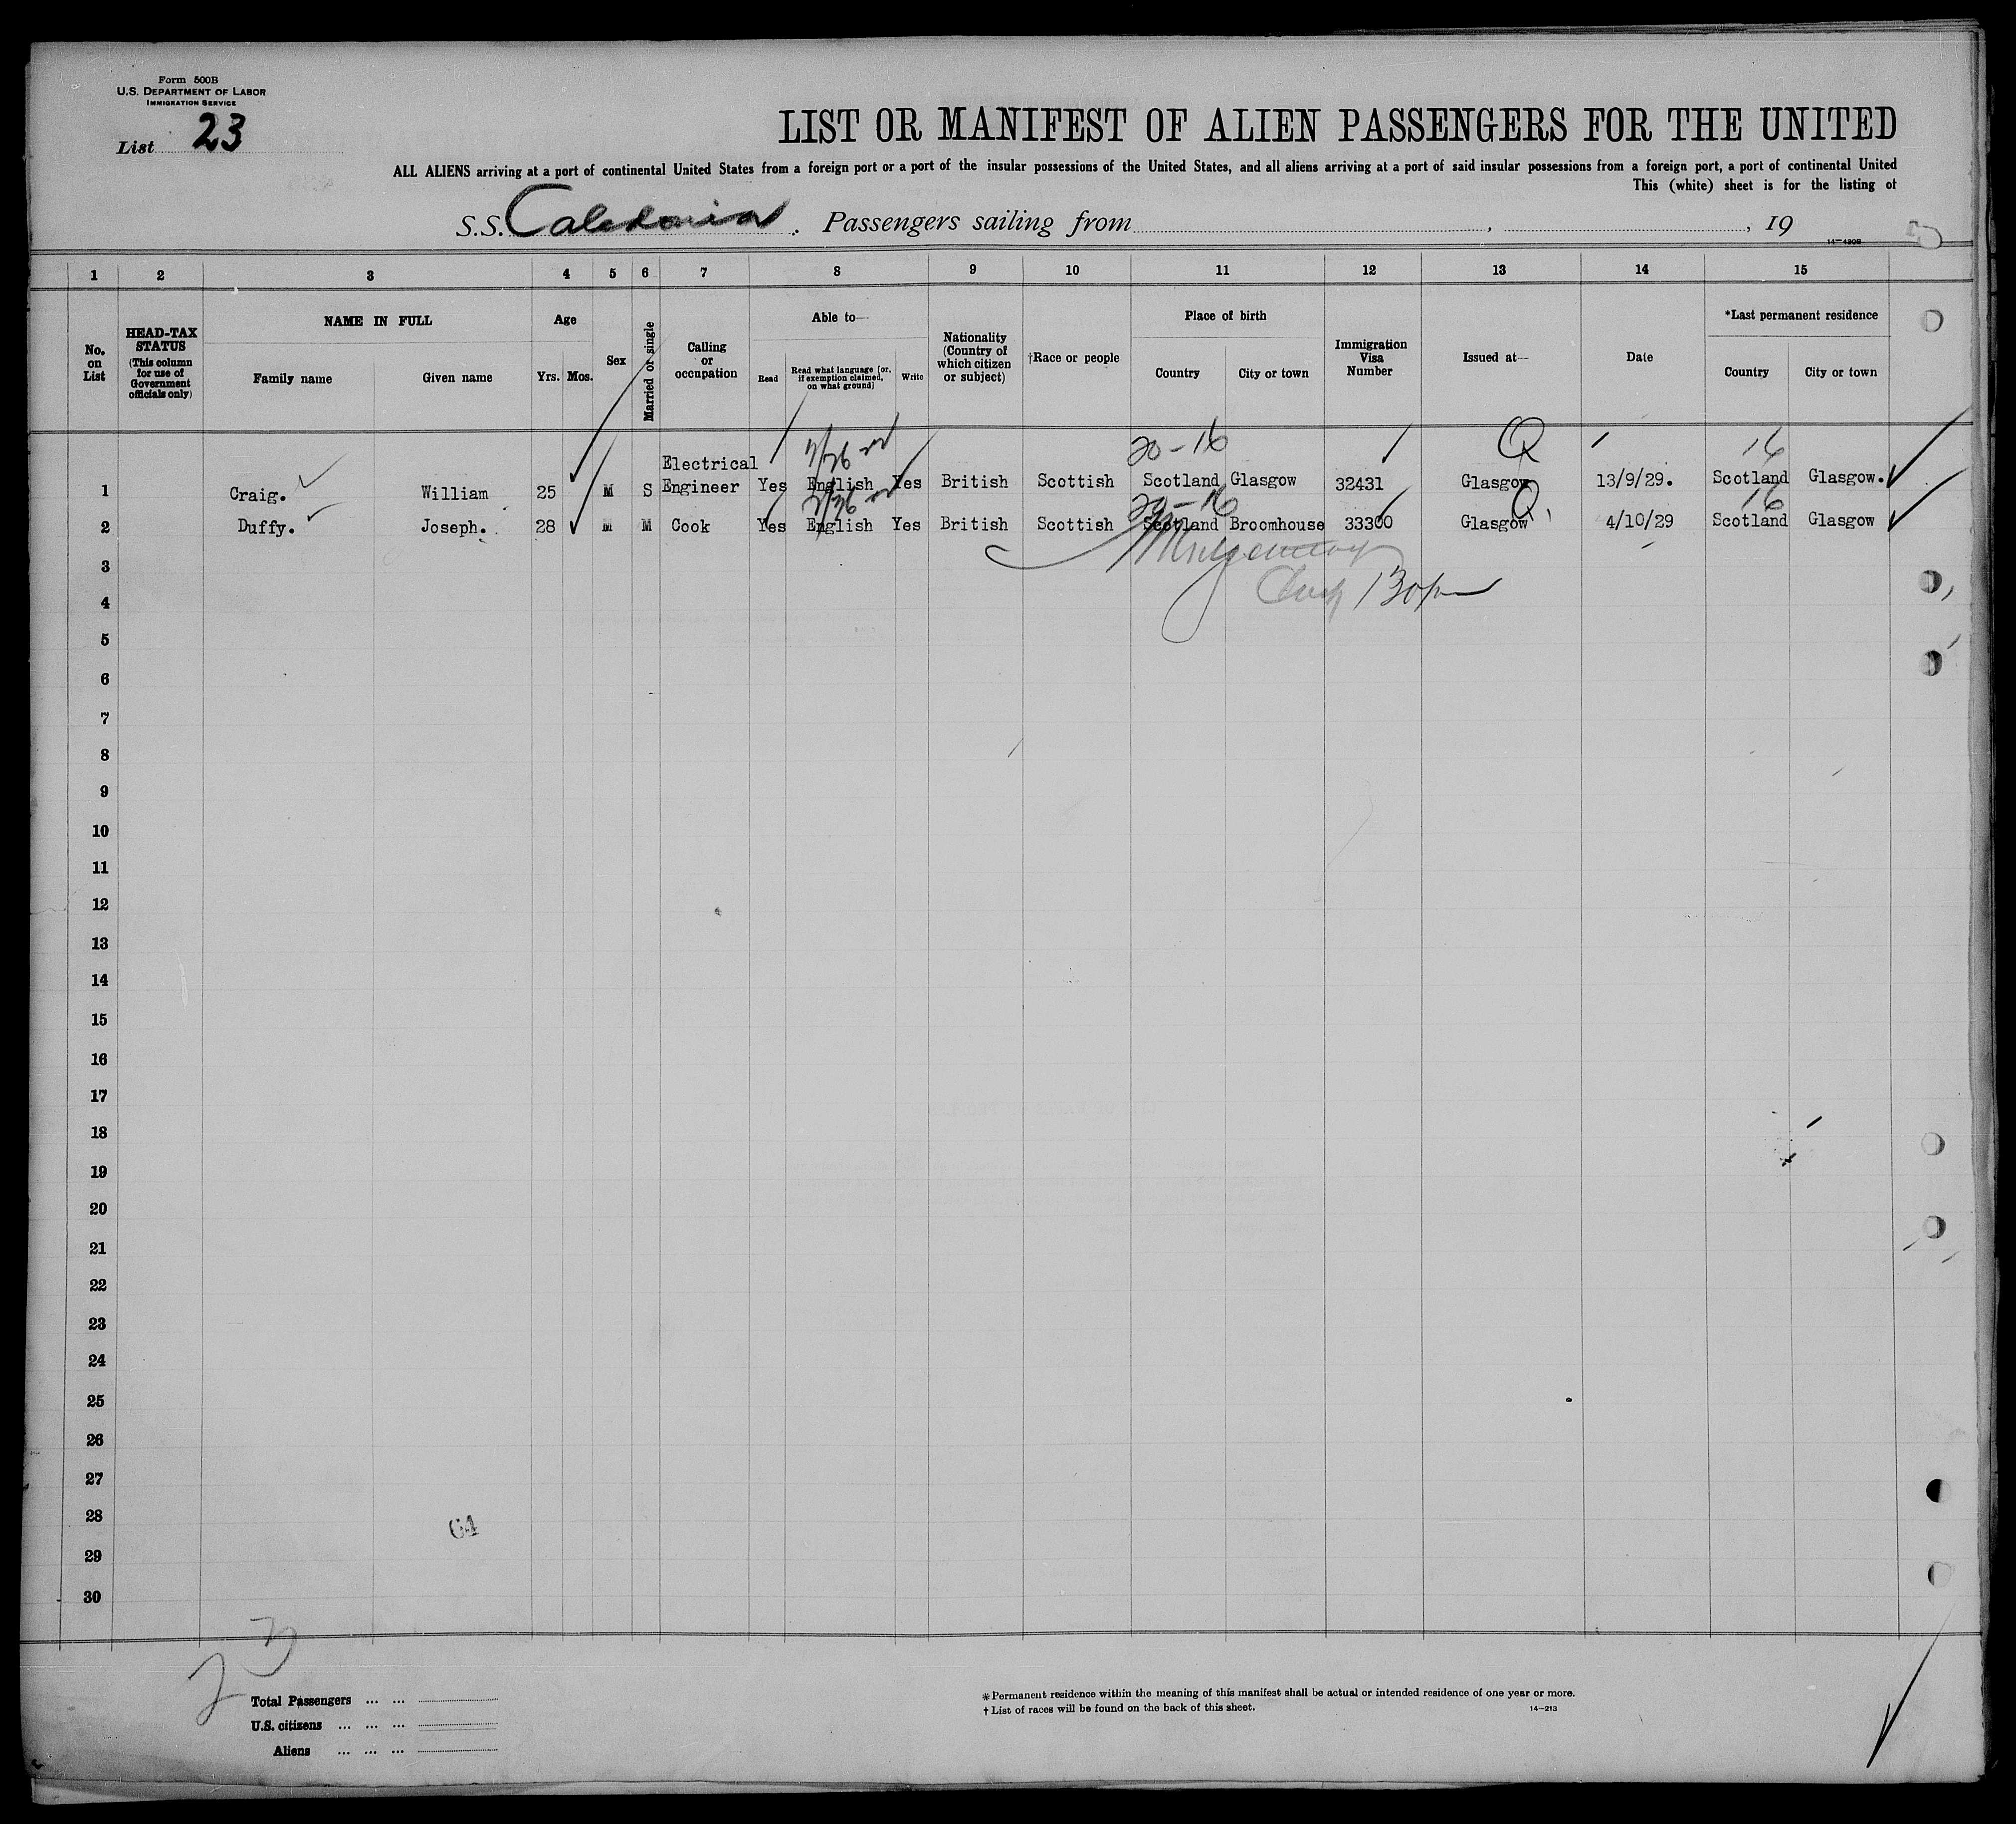 Form 500B
U.S. DEPARTMENT OF LABOR
IMMIGRATION SERVICE
List 23
LIST OR MANIFEST OF ALIEN PASSENGERS FOR THE UNITED
ALL ALIENS arriving at a port of continental United States from a foreign port or a port of the insular possessions of the United States, and all aliens arriving at a port of said insular possessions from a foreign port, a port of continental United
This (white) sheet is for the listing of
S.S. Caledonia. Passengers sailing from , , 19
14—480B
1 2 3 4 5 6 7 8 9 10 11 12 13 14 15
No. on List
HEAD-TAX STATUS (This column for use of Government officials only)
NAME IN FULL
Family name Given name
Age
Yrs. Mos.
Sex
Married or single
Calling or occupation
Able to—
Read Read what language [or, if exemption claimed, on what ground] Write
Nationality (Country of which citizen or subject)
†Race or people
Place of birth
Country City or town
Immigration Visa Number
Issued at—
Date
*Last permanent residence
Country City or town
20-16 Q 16
1 Craig. William 25 M S Electrical Engineer Yes English Yes British Scottish Scotland Glasgow 32431 Glasgow 13/9/29. Scotland Glasgow.
20-16 Q 16
2 Duffy. Joseph. 28 M M Cook Yes English Yes British Scottish Scotland Broomhouse 33300 Glasgow 4/10/29 Scotland Glasgow
3
4
5
6
7
8
9
10
11
12
13
14
15
16
17
18
19
20
21
22
23
24
25
26
27
28
64
29
30
23
Total Passengers ... ...
U.S. citizens ... ... ...
Aliens ... ... ...
*Permanent residence within the meaning of this manifest shall be actual or intended residence of one year or more.
† List of races will be found on the back of this sheet.
14—213